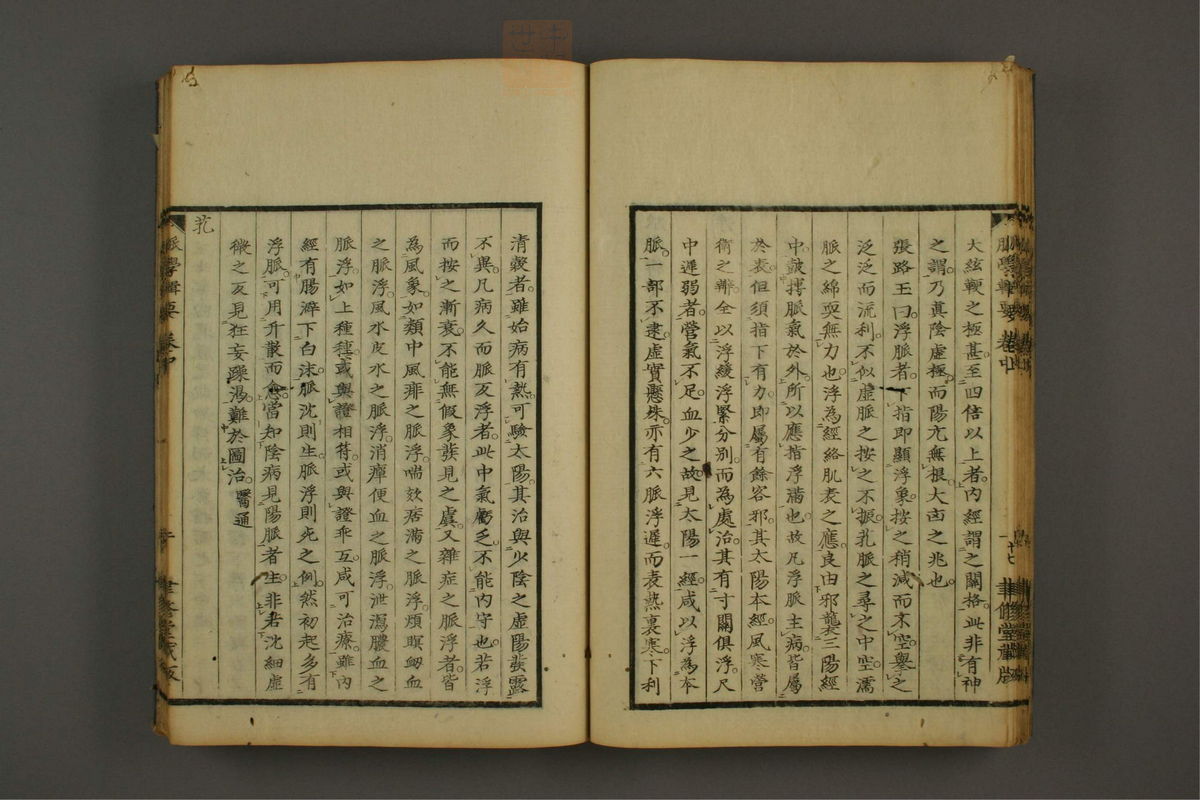 大絃鞕之極甚至四倍以上者内經謂之關格此非有神
之謂乃眞陰虛極而陽亢無根大凶之兆也
張路玉曰浮脈者下指即顯浮象按之稍減而不空舉之
泛泛而流利不似虛脈之按之不振芤脈之尋之中空濡
脈之綿耎無力也浮為經絡肌表之應良由邪襲三陽經
中鼓搏脈氣於外所以應指浮滿也故凡浮脈主病皆屬
於表但須指下有力即屬有餘客邪其太陽本經風寒營
衛之辨全以浮緩浮緊分別而為處治其有寸關俱浮尺
中遲弱者營氣不足血少之故見太陽一經咸以浮為本
脈一部不逮虛實懸殊亦有六脈浮遲而表熱裏寒下利
十七
聿修堂藏版
清穀者雖始病有熱可驗太陽其治與少陰之虛陽發露
不異凡病久而脈反浮者此中氣虧乏不能内守也若浮
而按之漸衰不能無假象發見之虞又雜症之脈浮者皆
為風象如類中風痱之脈浮喘欬痞滿之脈浮煩瞑衂血
之脈浮風水皮水之脈浮消癉便血之脈浮泄瀉膿血之
脈浮如上種種或與證相符或與證乖互咸可治療雖内
經有腸澼下白沫脈沈則生脈浮則死之例然初起多有
浮脈可用升散而愈當知陰病見陽脈者生非若沈細虛
微之反見狂妄躁渴難於圖治醫通
芤
脈學輯要 卷中